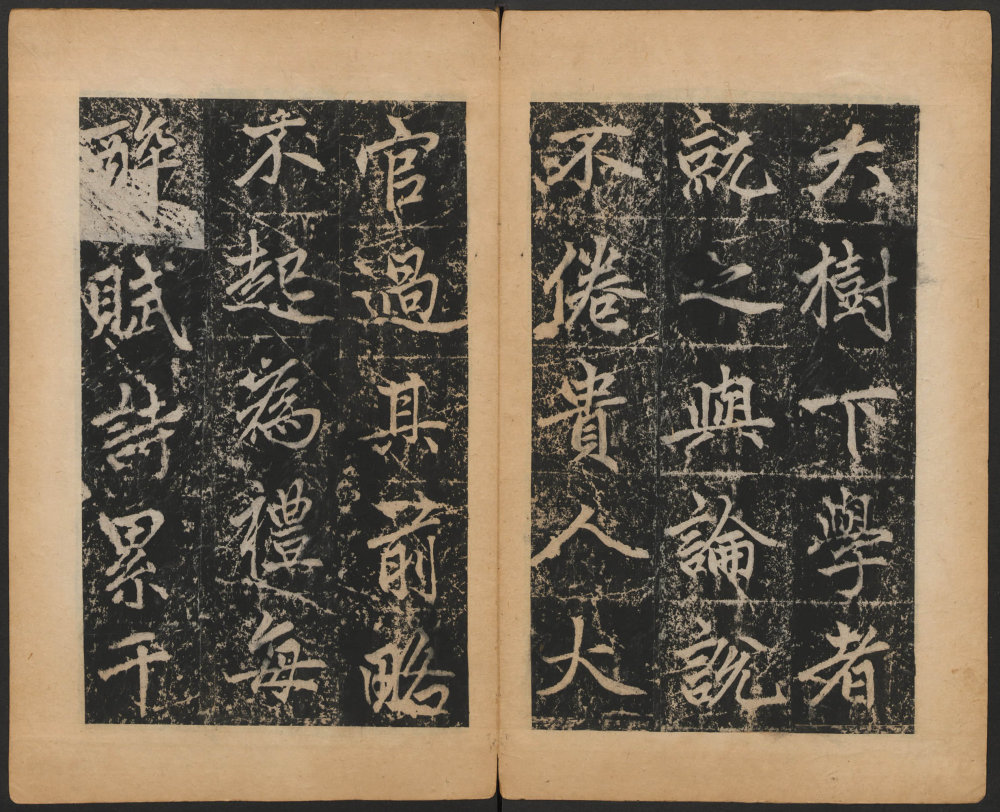 大樹下學者
就之與論說
不倦貴人大
官過其前略
未起為禮每
醉賦詩累千